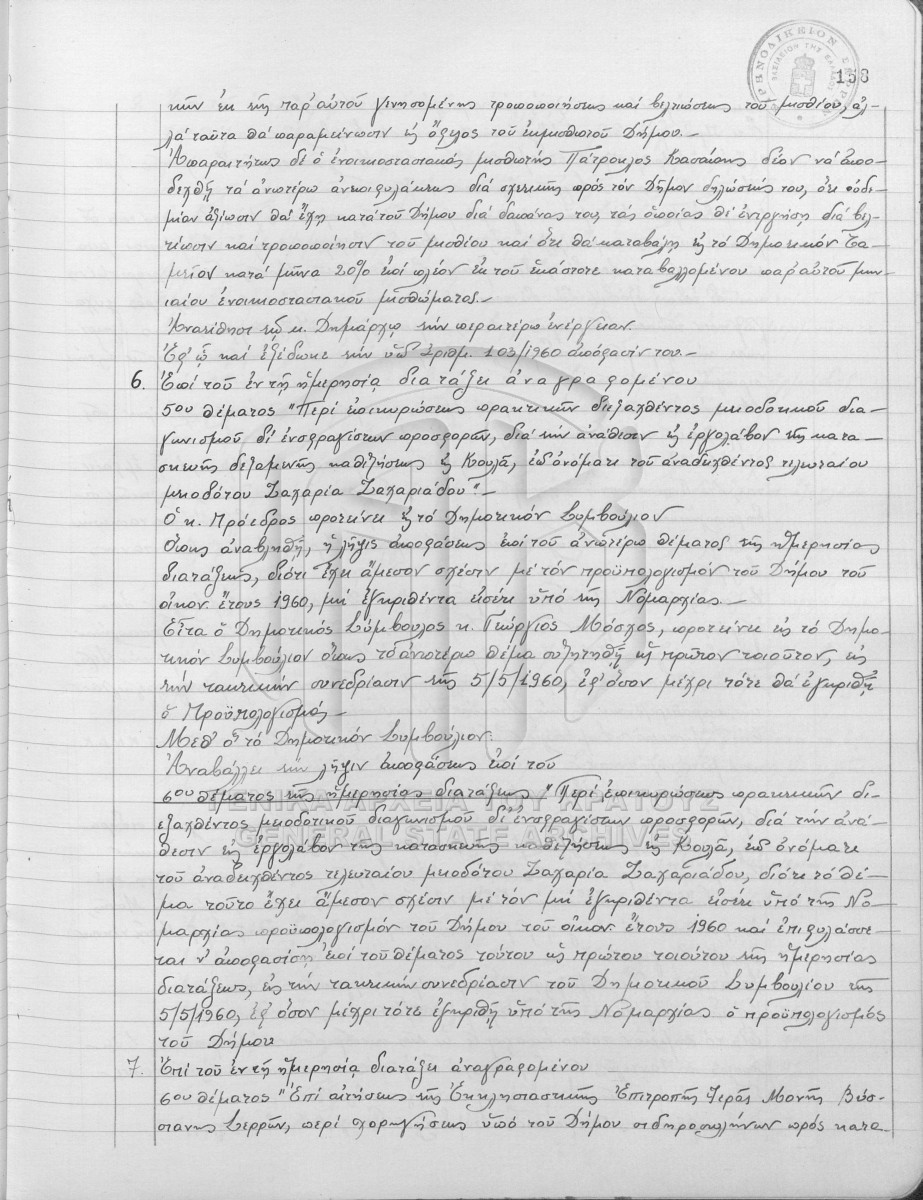 158
κῶν ἐκ τῆς παρ' αὐτοῦ γενησομένης τροποποιήσεως καί βελτιώσεως τοῦ μισθίου, ἀλ-
λά ταῦτα θά παραμείνωσιν εἰς ὄφελος τοῦ ἐκμισθωτοῦ Δήμου.-
Ἀπαραιτήτως δέ ὁ ἐνοικοστασιακός μισθωτής Πάτροκλος δέον νά ἀπο-
δεχθῇ τά ἀνωτέρω ἀνεπιφυλάκτως διά σχετικῆς πρός τόν Δῆμον δηλώσεώς του, ὅτι οὐδε-
μίαν ἀξίωσιν θά ἔχῃ κατά τοῦ Δήμου διά δαπάνας του, τάς ὁποίας θά ἐνεργήσῃ διά βελ-
τίωσιν καί τροποποίησιν τοῦ μισθίου καί ὅτι θά καταβάλῃ εἰς τό Δημοτικόν Τα-
μεῖον κατά μῆνα 20% ἐπί πλέον ἐκ τοῦ ἑκάστοτε καταβαλλομένου παρ' αὐτοῦ μην-
ιαίου ἐνοικοστασιακοῦ μισθώματος.-
Ἀνατίθησι τῷ κ. Δημάρχῳ τήν περαιτέρω ἐνέργειαν.
Ἐφ' ᾧ καί ἐξέδωκε τήν ὑπ' ἀριθμ. 103/1960 ἀπόφασίν του.-
6. Ἐπί τοῦ ἐν τῇ ἡμερησίᾳ διατάξει ἀναγραφομένου
5ου θέματος "Περί ἐπικυρώσεως πρακτικῶν διεξαχθέντος μειοδοτικοῦ δια-
γωνισμοῦ δι' ἐνσφραγίστων προσφορῶν, διά τήν ἀνάθεσιν εἰς ἐργολάβον τῆς κατα-
σκευῆς δεξαμενῆς καθιζήσεως εἰς Κουλᾶ, ἐπ' ὀνόματι τοῦ ἀναδειχθέντος τελευταίου
μειοδότου Ζαχαρία Ζαχαριάδου".-
Ὁ κ. Πρόεδρος προτείνει εἰς τό Δημοτικόν Συμβούλιον
Ὅπως ἀναβληθῇ, ἡ λῆψις ἀποφάσεως ἐπί τοῦ ἀνωτέρω θέματος τῆς ἡμερησίας
διατάξεως, διότι ἔχει ἄμεσον σχέσιν μέ τόν προϋπολογισμόν τοῦ Δήμου τοῦ
οἰκον. ἔτους 1960, μή ἐγκριθέντα εἰσέτι ὑπό τῆς Νομαρχίας.-
Εἶτα ὁ Δημοτικός Σύμβουλος κ. Γεώργιος Μόσχος, προτείνει εἰς τό Δημο-
τικόν Συμβούλιον ὅπως τό ἀνωτέρω θέμα συζητηθῇ ὡς πρῶτον τοιοῦτον, εἰς
τήν τακτικήν συνεδρίασιν τῆς 5/5/1960, ἐφ' ὅσον μέχρι τότε θά ἐγκριθῇ
ὁ Προϋπολογισμός.-
Μεθ' ὅ τό Δημοτικόν Συμβούλιον.
Ἀναβάλλει τήν λῆψιν ἀποφάσεως ἐπί τοῦ
6ου θέματος τῆς ἡμερησίας διατάξεως "Περί ἐπικυρώσεως πρακτικῶν δι-
εξαχθέντος μειοδοτικοῦ διαγωνισμοῦ δι' ἐνσφραγίστων προσφορῶν, διά τήν ἀνά-
θεσιν εἰς ἐργολάβον τῆς κατασκευῆς καθιζήσεως εἰς Κουλᾶ, ἐπ' ὀνόματι
τοῦ ἀναδειχθέντος τελευταίου μειοδότου Ζαχαρία Ζαχαριάδου, διότι τό θέ-
μα τοῦτο ἔχει ἄμεσον σχέσιν μέ τόν μή ἐγκριθέντα εἰσέτι ὑπό τῆς Νο-
μαρχίας προϋπολογισμόν τοῦ Δήμου τοῦ οἰκον. ἔτους 1960 καί ἐπιφυλάσσε-
ται ν' ἀποφασίσῃ ἐπί τοῦ θέματος τούτου ὡς πρώτου τοιούτου τῆς ἡμερησίας
διατάξεως, εἰς τήν τακτικήν συνεδρίασιν τοῦ Δημοτικοῦ Συμβουλίου τῆς
5/5/1960, ἐφ' ὅσον μέχρι τότε ἐγκριθῇ ὑπό τῆς Νομαρχίας ὁ προϋπολογισμός
τοῦ Δήμου
7. Ἐπί τοῦ ἐν τῇ ἡμερησίᾳ διατάξει ἀναγραφομένου
6ου θέματος "Ἐπί αἰτήσεως τῆς Ἐκκλησιαστικῆς Ἐπιτροπῆς Ἱερᾶς Μονῆς Βύσ-
σιανης Σερρῶν, περί χορηγήσεως ὑπό τοῦ Δήμου σιδηροσωλήνων πρός κατα-
ΓΕΝΙΚΑ ΑΡΧΕΙΑ ΤΟΥ ΚΡΑΤΟΥΣ
GENERAL STATE ARCHIVES